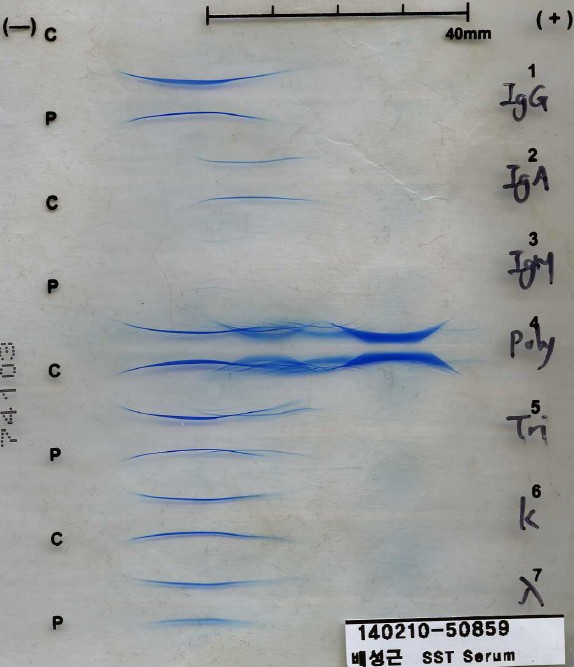 (—) C (+)
40mm
1
IgG
P
2
IgA
C
3
IgM
P
4
Poly
C
5
Tri
P
6
k
C
7
λ
P
140210-50859
배성근 SST Serum